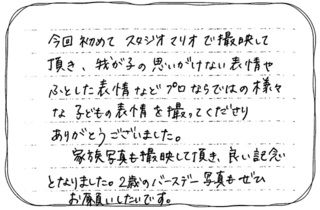 今回初めて スタジオマリオで撮映して
頂き、我が子の思いがけない表情や
ふとした表情などプロならではの様々
な子どもの表情を撮ってくださり
ありがとうございました。
家族写真も撮映して頂き、良い記念
となりました。2歳のバースデー写真もぜひ
お願いしたいです。